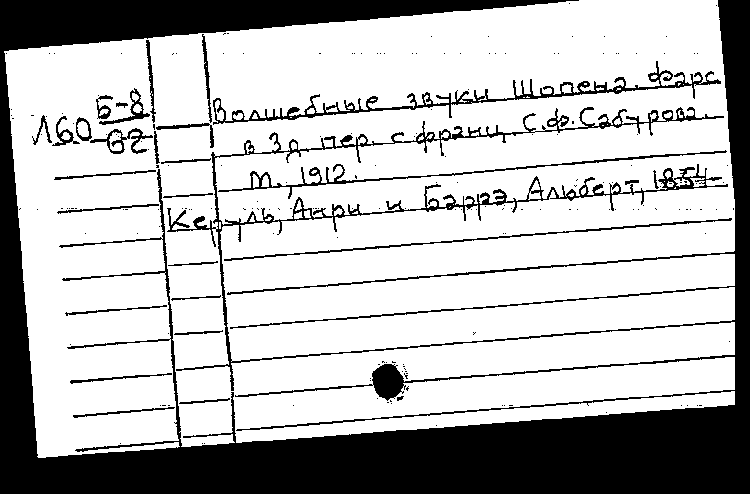 Л60 Б-8
62
Волшебные звуки Шопена. Фарс
в 3д. пер. с франц. С.Ф.Сабурова.
М., 1912.
Керуль, Анри и Баррэ, Альберт, 1854-